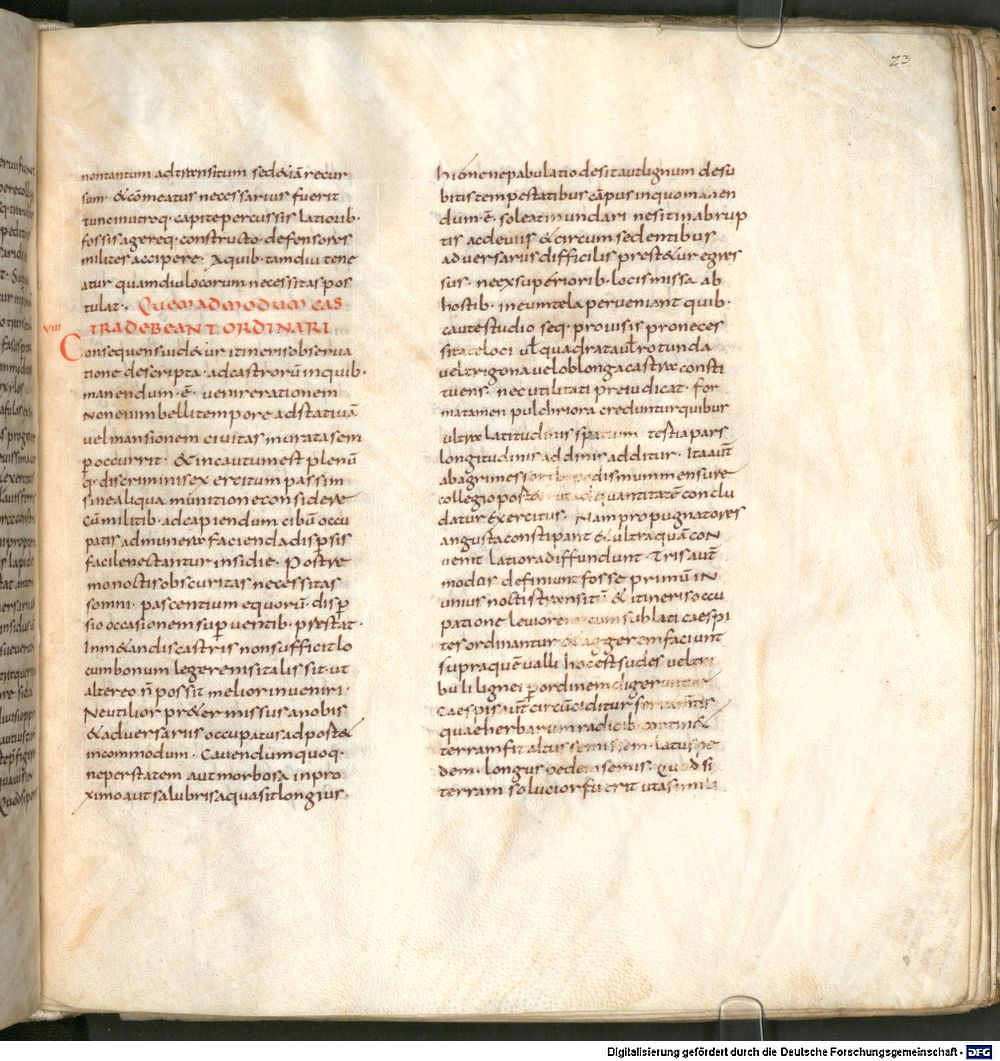 23
nontantum adtransitum sed&iā recur
sum· &cōmeatus necessarius fuerit
tuncinutroq· capitepercussis latiorib·
fossisaggereq· constructo· defensores
milites accipere· Aquib· tamdiu tene
atur quamdiulocorum necessitas pos
tulat· Quemadmodum cas
VIII
tradebeant ordinari
Consequensuid&ur itinerisobserva
tione descripta· adcastrorū inquib·
manendum· ē· venirerationem
Nonenim bellitempore adstativā
vel mansionem civitas muratasem
p̄ occurrit· &incautumest plenū
q· discriminisexercitum passim
sinealiqua munitioneconsidere
Cū militib· adcapiendum cibū occu
patis admunera faciendadisp̄sis
facilenectantur insidie· Postre
monoctisobscuritas necessitas
somni· pascentium equorū· disp̄
sio occasionem sup̄ventib· p̄restat·
Inm&andiscastris nonsufficitlo
cumbonum legerenisitalissit· ut
altereo n̄ possit melior inveniri·
Neutilior pr&ermissusanobis
&adversariis occupatusadport&
incommodum· Cavendumquoq·
neperstatem autmorbosa inpro
ximoautsalubrisaquasitlongius·
hionenepabulatio desitautlignum desu
bitistempestatibus cāpusinquomanen
dum·ē· soleatinundari nesitinabrup
tis acdeviis &circumsedentibus
adversariisdifficilis prest&ur egres
sus· neexsuperiorib· locismissa ab
hostib· ineumtelaperveniant quib·
cautestudio seq· provisis proneces
sitateloci ul̄ quadrataul̄rotunda
veltrigonaveloblongacastra consti
tuens· necutilitati preiudicat· for
matamen pulchriora credunturquibus
ultra latitudinis spatium tertiapars
longitudinis additur· Itaaut̄
abagrimessorib· podismummensure
collegioportet quantitatē conclu
datur exercitus· Nampropugnatores
angustaconstipant &ultraquācon
venit latioradiffundunt· Trisaut̄
modis definiunt fosse primū in
unius noctistransit̄ &itinerisoccu
patione leviorem cumsublati caespi
tes ordinantur &aggerem faciunt
supraquēvalli hocestsudes veltri
buli lignei p̄ordinemdigeruntur
Caespisaut̄ circūciditur ferramentis
quaeherbarumradicib· contin&
terramfit altus semissem· latus pe
dem· longus pedem semis· Quodsi
terram solucior fuerit utasimili
Digitalisierung gefördert durch die Deutsche Forschungsgemeinschaft - DFG